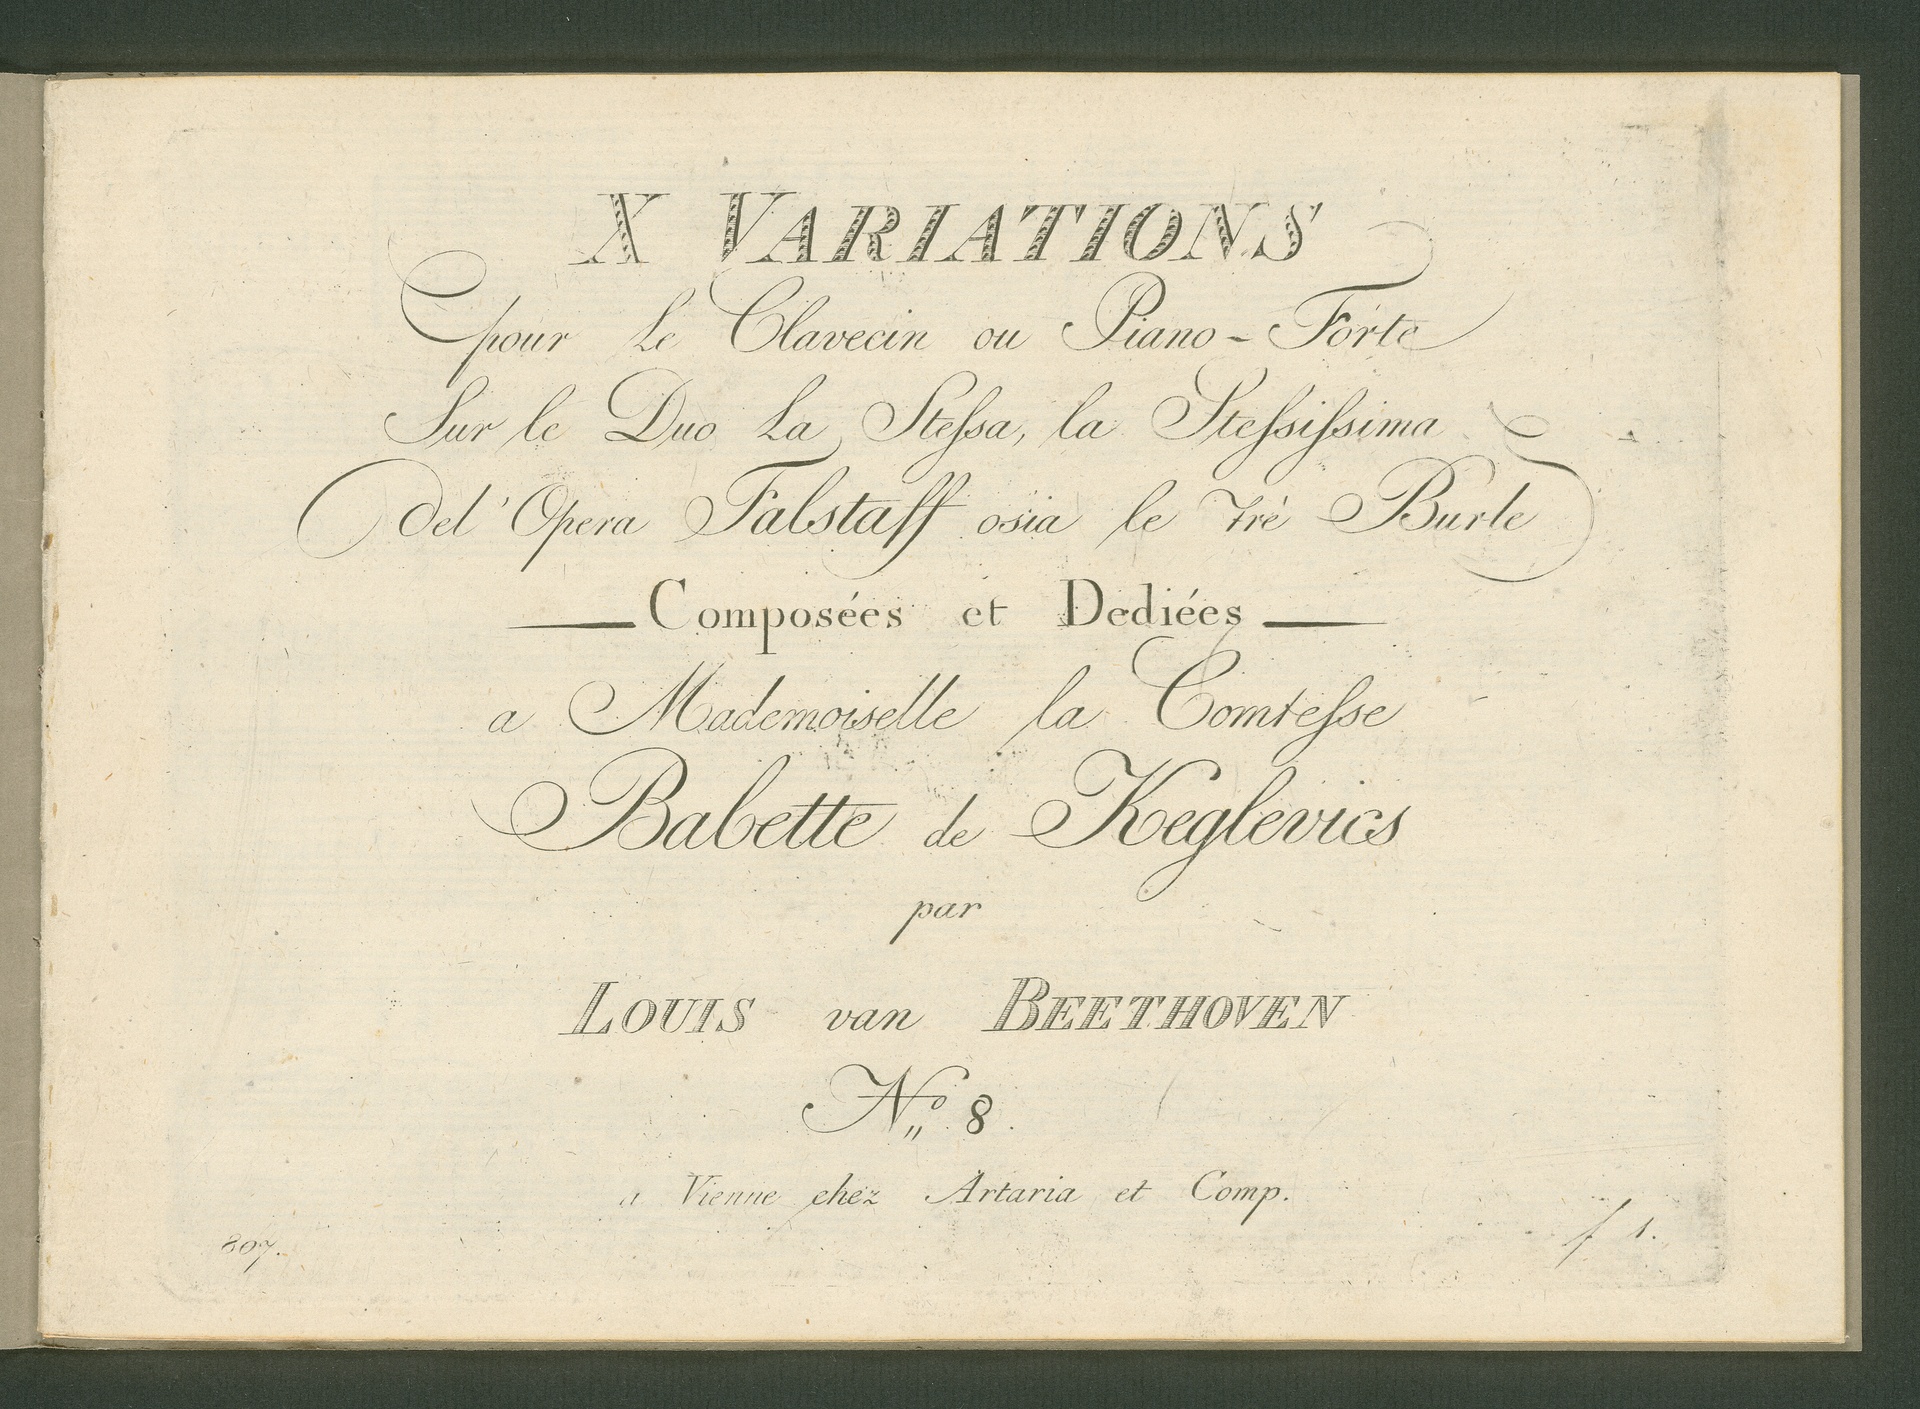 X VARIATIONS
pour Le Clavecin ou Piano-Forte
Sur le Duo La Steſsa, la Steſsiſsima
del' Opera Falstaff osia le tre Burle
Composées et Dediées
a Mademoiselle la Comteſse
Babette de Keglevics
par
LOUIS van BEETHOVEN
No„ 8.
a Vienne chez Artaria et Comp.
807. f 1.